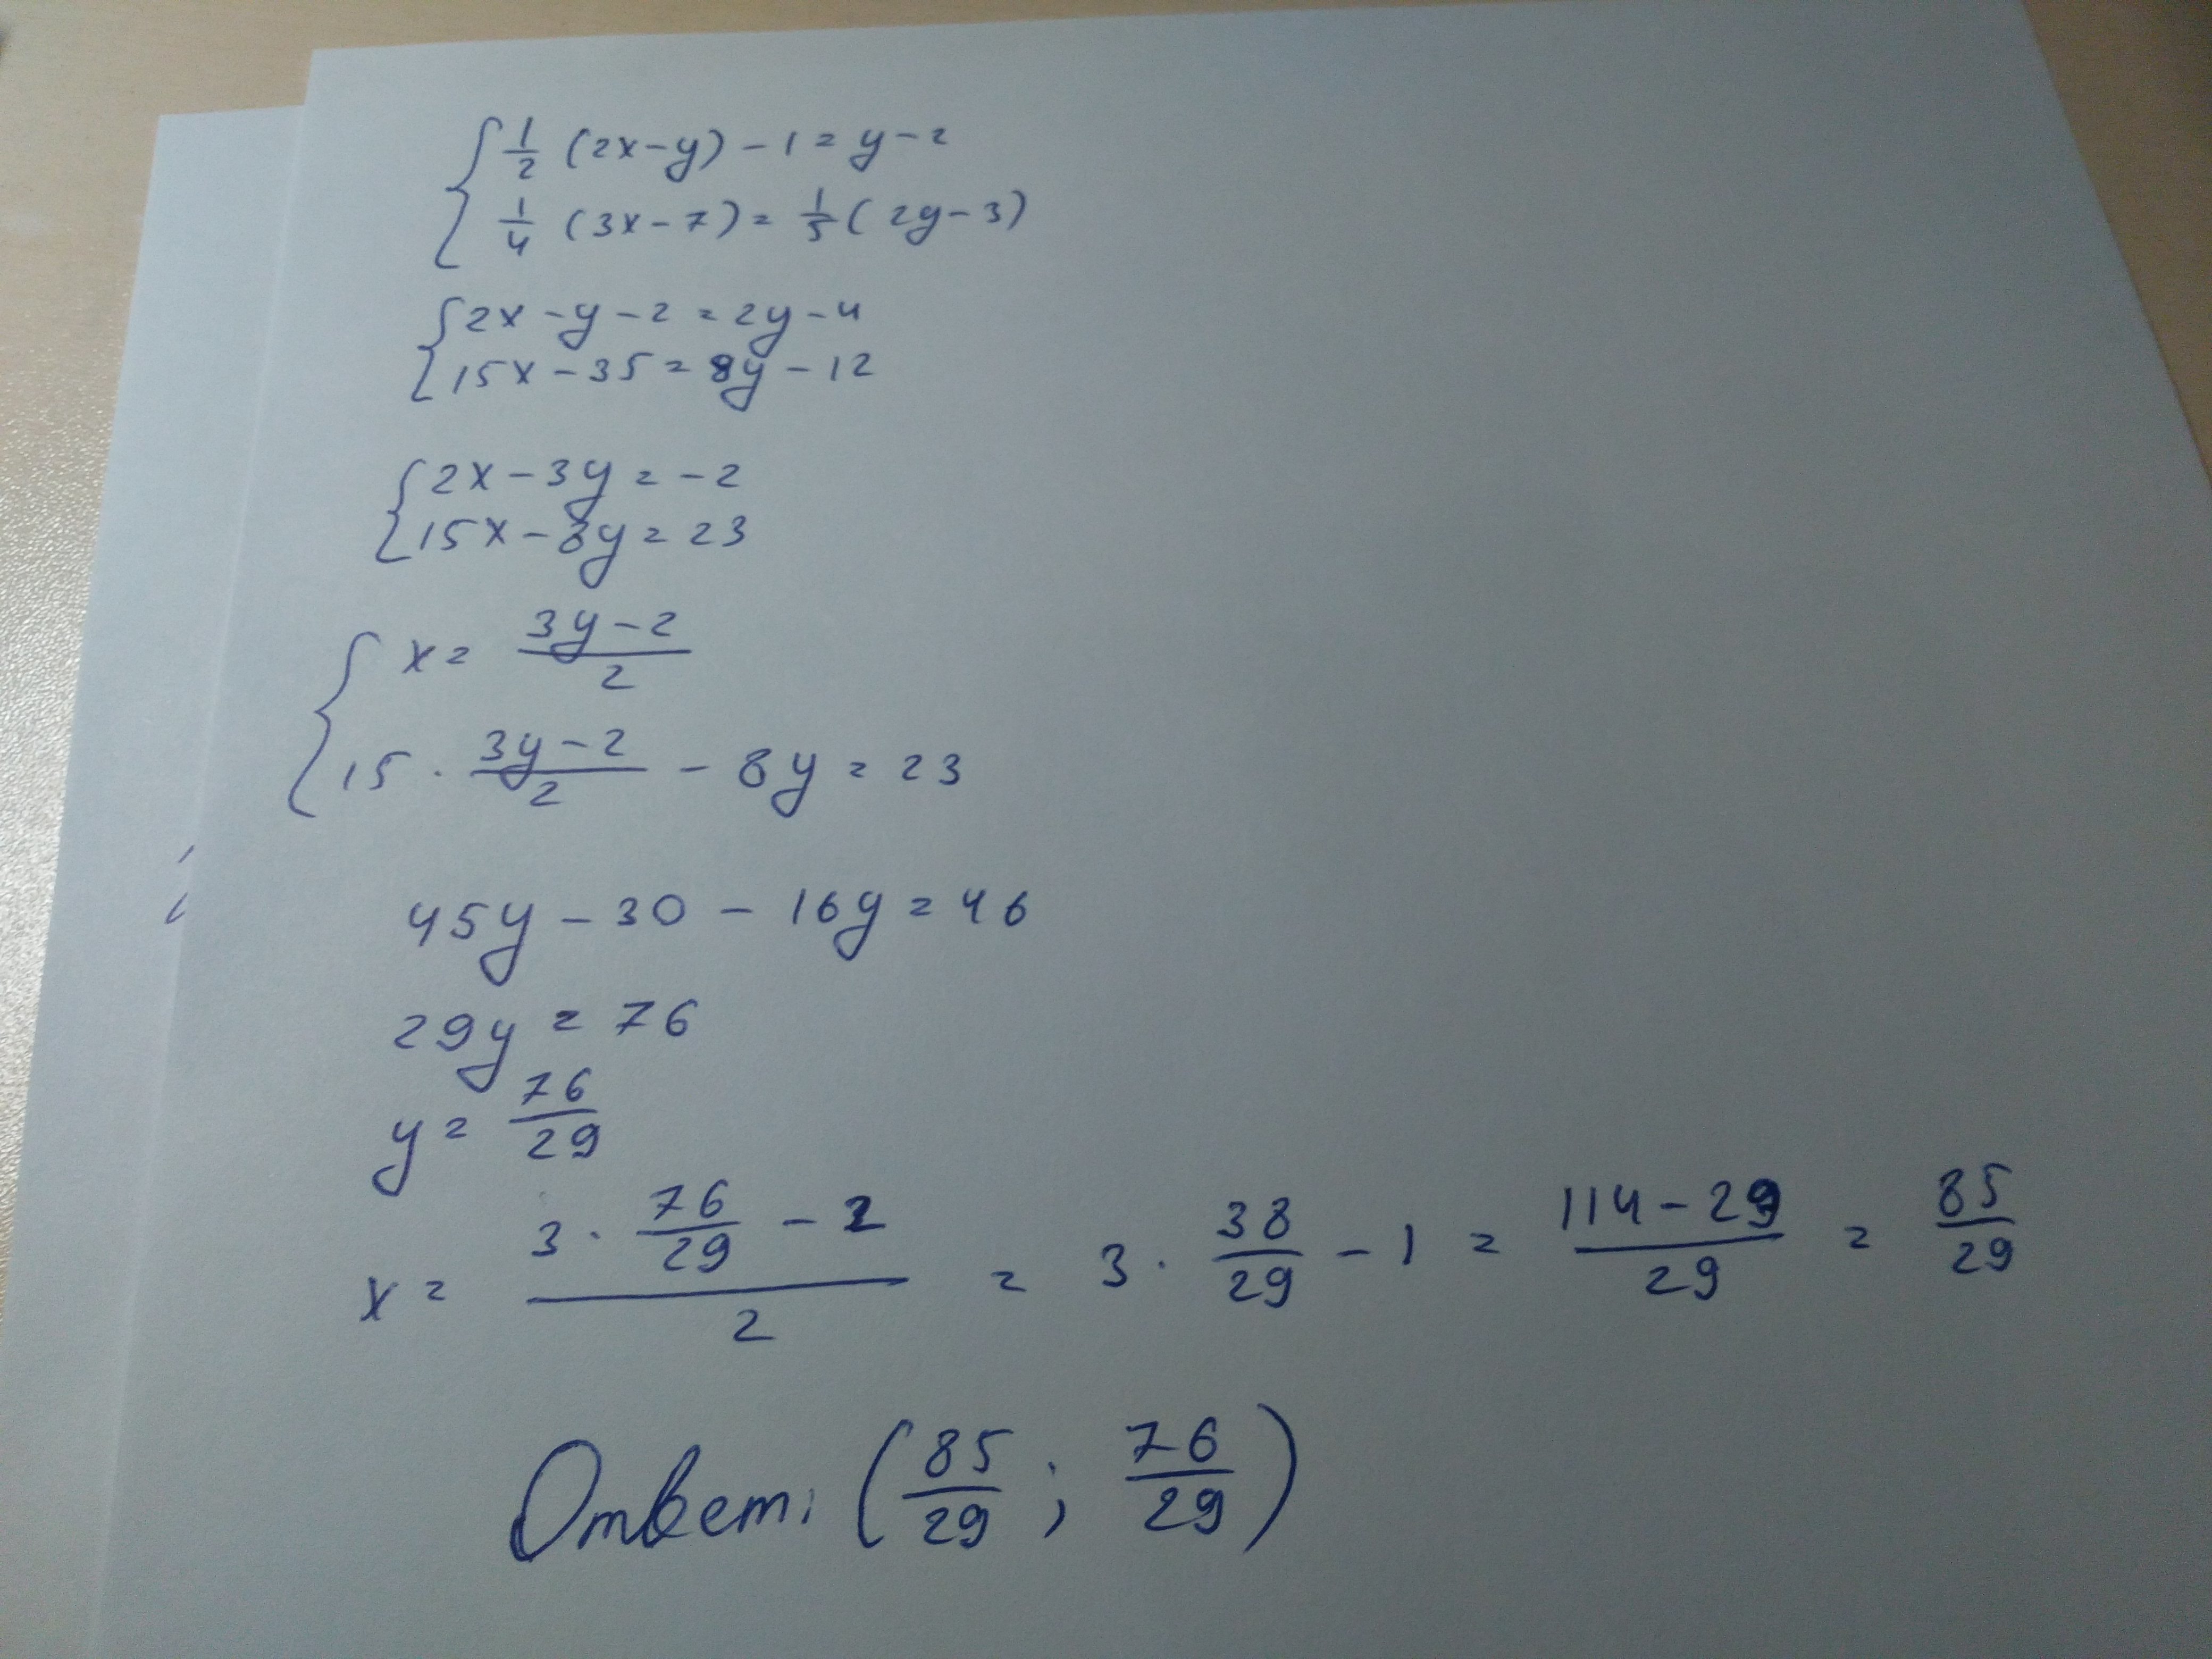 { 1/2 (2x-y) - 1 = y - 2
1/4 (3x - 7) = 1/5 (2y - 3)
{ 2x - y - 2 = 2y - 4
15x - 35 = 8y - 12
{ 2x - 3y = -2
15x - 8y = 23
{ x = (3y - 2)/2
15 · (3y - 2)/2 - 8y = 23
45y - 30 - 16y = 46
29y = 76
y = 76/29
x = (3 · 76/29 - 2)/2 = 3 · 38/29 - 1 = (114 - 29)/29 = 85/29
Ответ: (85/29 ; 76/29)